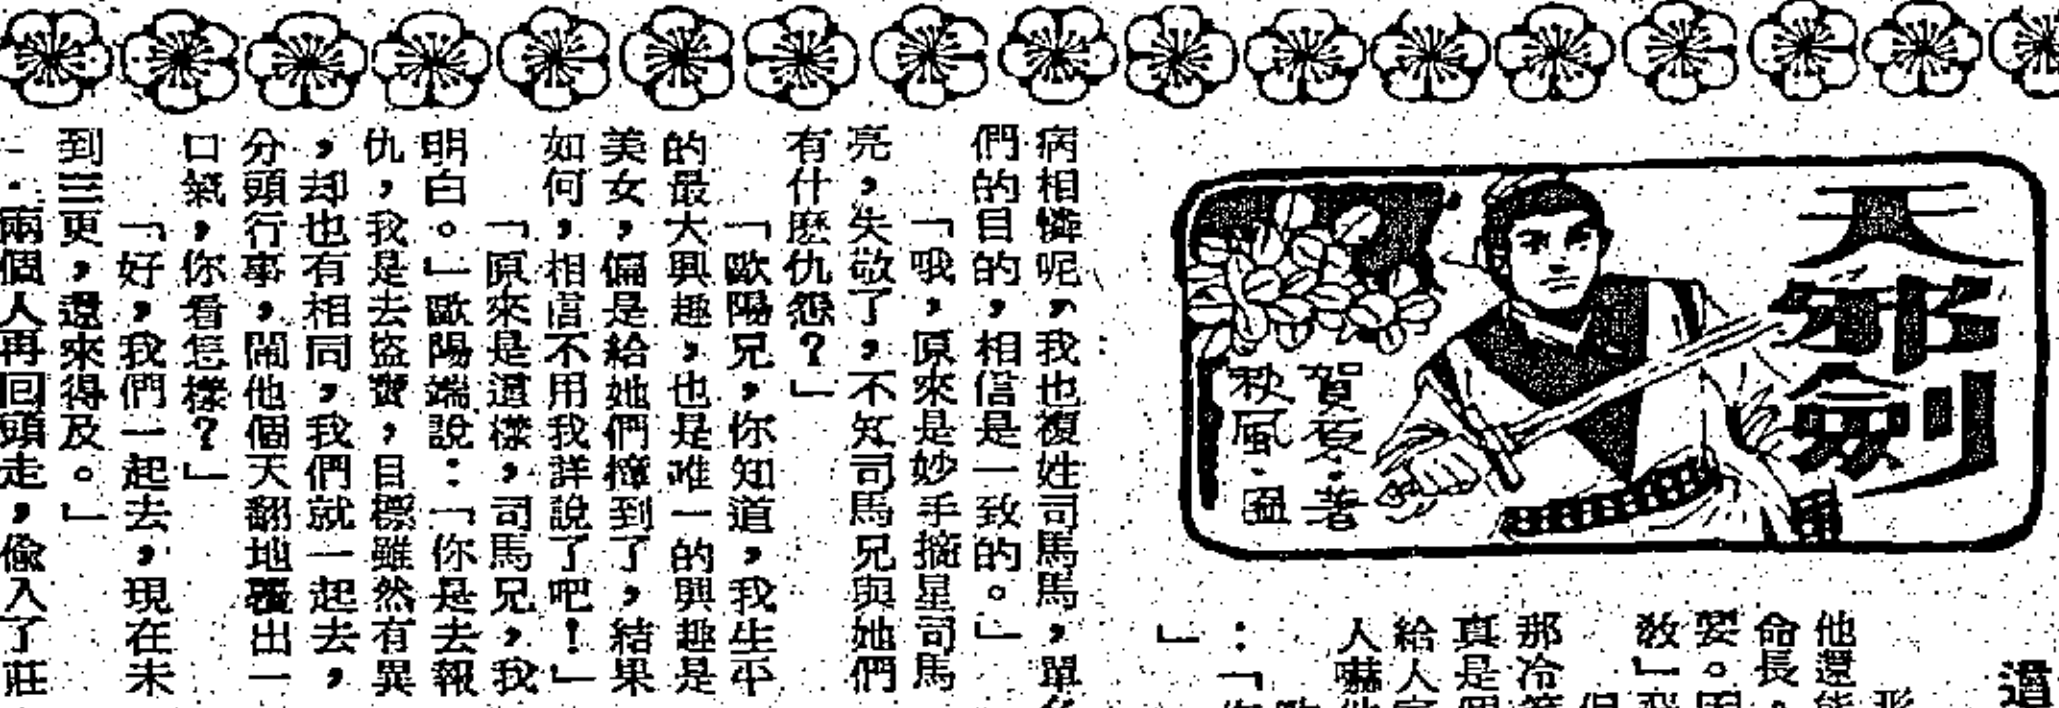 天邪劍
賀夏·著
秋風·圖
他還能
命長，
敎」
那冷
真是個
給人家
人嚇他
：「
」
病相憐呢，我也複姓司馬馬，單
們的目的，相信是一致的。」
「哦，原來是妙手摘星司馬
亮，失敬了，不知司馬兄與她們
有什麽仇怨？」
「歐陽兄，你知道，我生平
的最大興趣，也是唯一的興趣是
美女，偏是給她們撞到了，結果
如何，相信不用我詳說了吧！」
「原來是這樣，司馬兄，我
明白。」歐陽端說：「你是去報
仇，我是去盜寶，目標雖然有異
，却也有相同，我們就一起去，
分頭行事，鬧他個天翻地覆出一
口氣，你看怎樣？」
「好，我們一起去，現在未
到三更，還來得及。」
兩個人再回頭走，偸入了莊